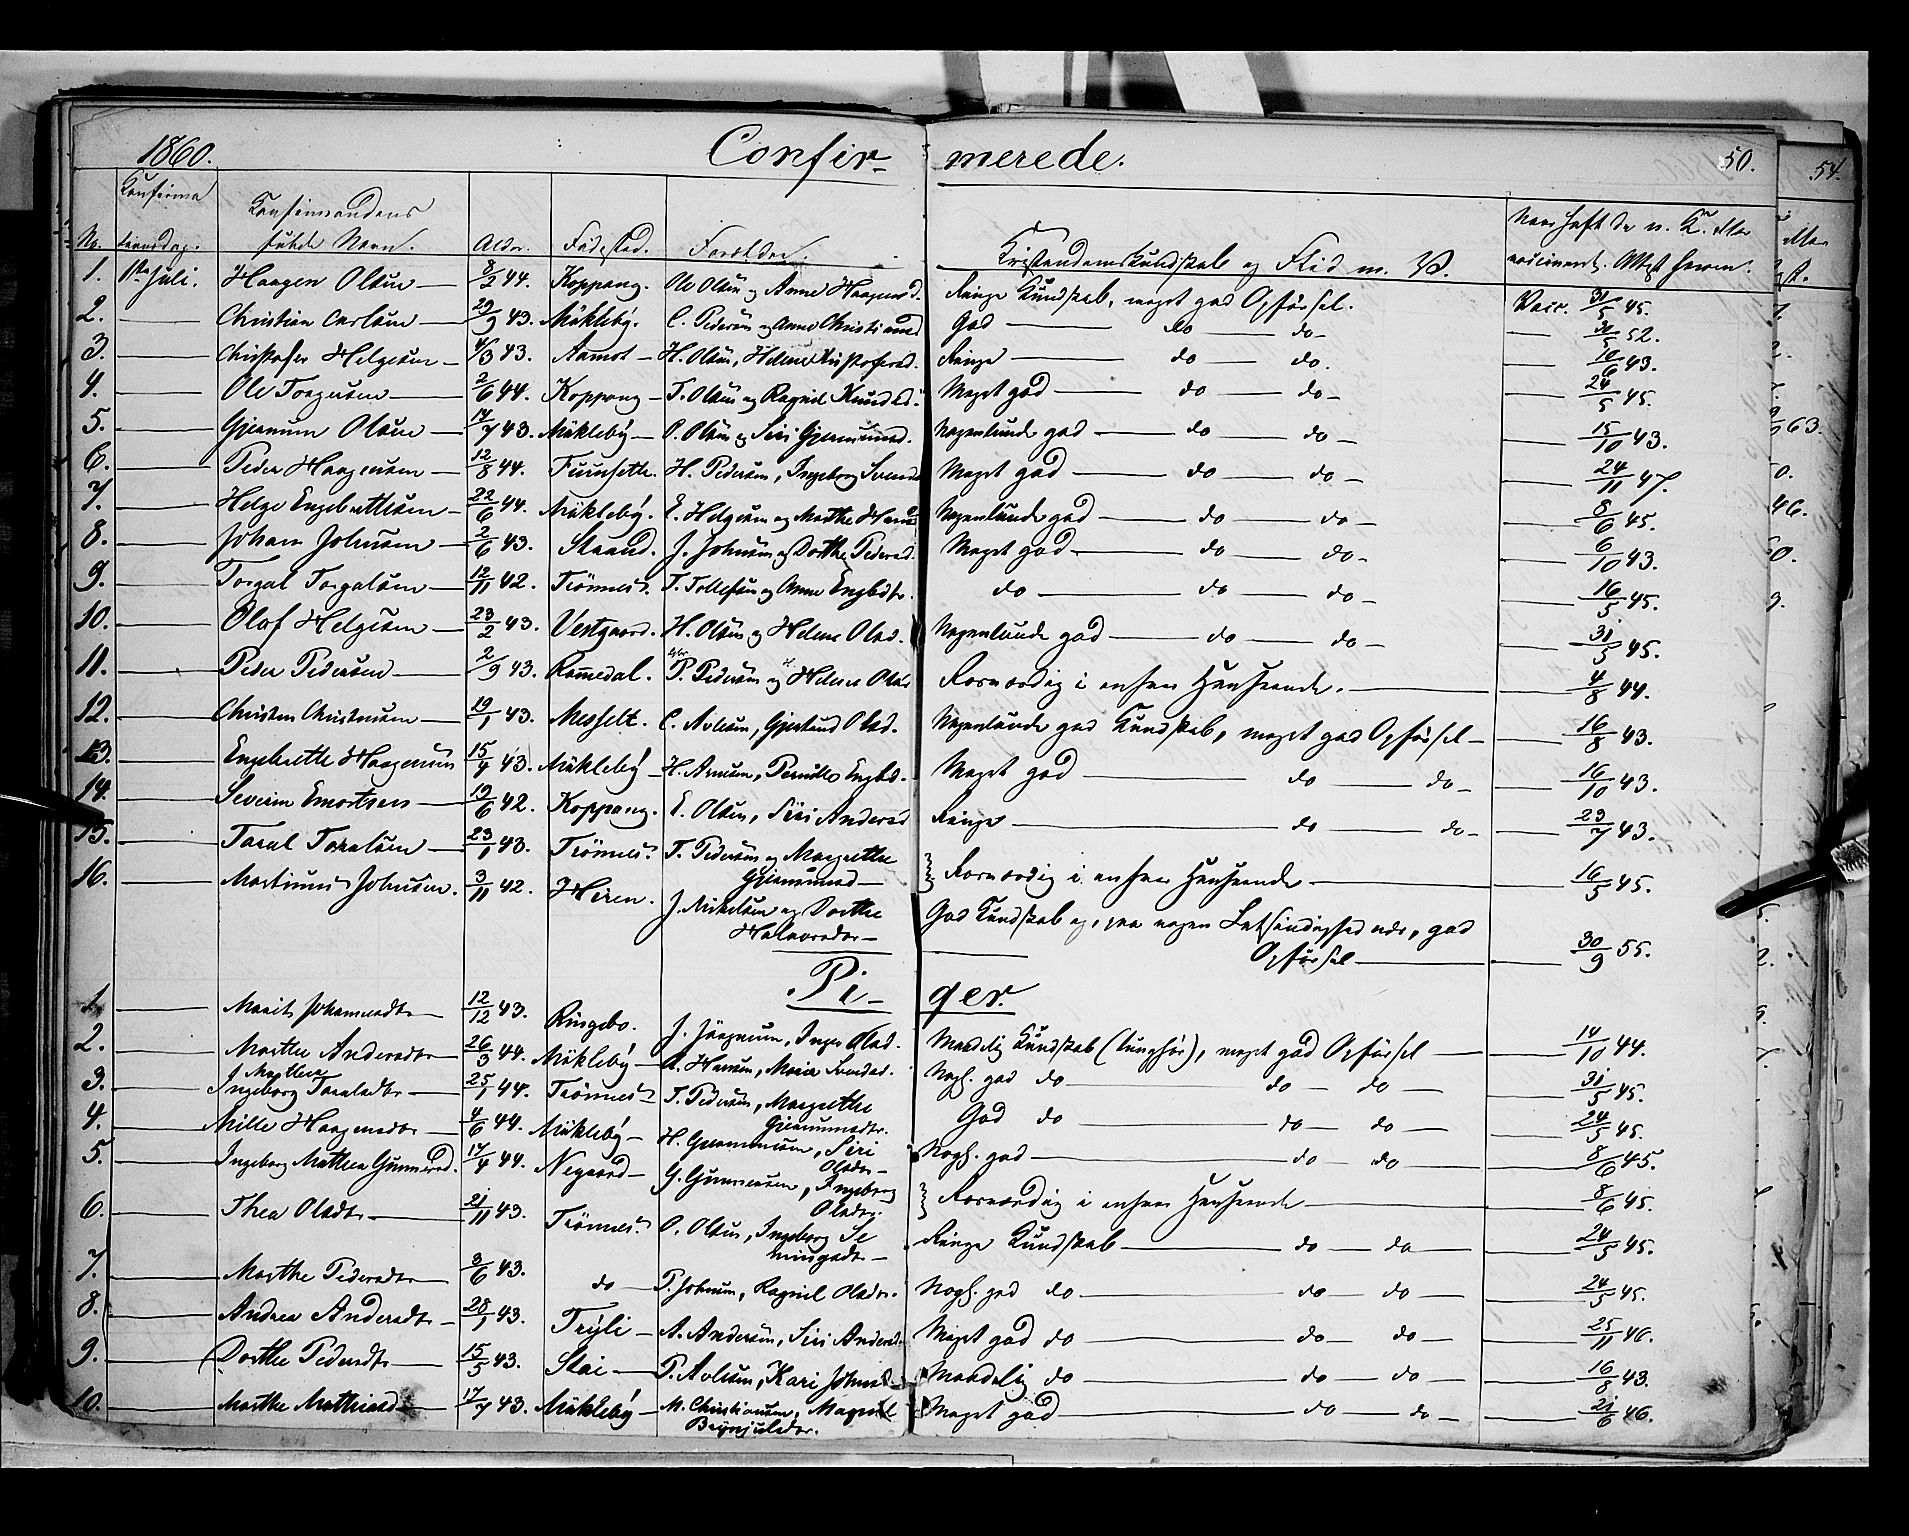 1860. Confir- merede. 50. 54.
No. Confirma tionsdag. Konfirmandens fulde Navn. Alder. Fødested. Forældre. Kristendomskundskab og Flid m. V. Naar haft de n. K. eller vaccineret. Attest herom.
1. 1ste Juli. Haagen Olsen — 8/2 44. Koppang. Ole Olsen og Anne Haagensd. Ringe Kundskab, meget god Opførsel. Vacc. 31/5 45.
2. — Christian Carlsen — 29/9 43. Mökleby. C. Pedersen og Anne Christiansd God — do — do — 31/5 52.
3. — Christofer Helgesen — 4/3 43. Aamot — H. Olsen, Helene Christofersd. Ringe — do do. — 10/6 43.
4. — Ole Torgersen — 2/6 44. Koppang — T. Olsen og Ragnil Knudsd. Meget god — do — do — 24/5 45.
5. — Gjermun Olsen — 14/7 43. Mökleby — O. Olsen og Siri Gjermunsd. Nogenlunde god — do — do — 15/10 43.
6. — Peder Haagensen — 12/8 44. Furusette. H. Pedersen, Ingeborg Meget god — do do — 24/11 47.
7. — Helge Engebrettsen — 22/6 44. Mökleby. E. Helgesen og Marthe Nogenlunde god — do — do — 8/6 45.
8. — Johan Johnsen — 2/6 43. Strand. J. Johnsen og Dorthe Pedersd. Meget god — do do — 6/10 43.
9. — Torgal Torgalsen — 12/11 42. Trönnes. T. Tollefsen og Anne Engbdtr. do — do do — 16/5 45.
10. — Olof Helgesen — 23/2 43. Vestgaard. H. Olsen og Helene Olsd. Nogenlunde god — do — do — 31/5 45.
11. — Peder Pedersen — 2/9 43. Romedal. P. Pedersen og Helene Olsd Forsvarlig i enhver Henseende. — 4/8 44.
12. — Christen Christensen — 19/1 43. Messelt. C. Avlesen, Gjertrud Olsd. Nogenlunde god Kundskab, meget god Opførsel — 16/8 43.
13. — Engebrette Haagensen 15/4 43. Mökleby — H. Arnesen, Pernille Engbd. Meget god — do — do — 16/10 43.
14. — Severin Emortsen — 19/6 42. Koppang. E. Olsen, Siri Andersd Ringe — do do — 23/7 43.
15. — Taral Taralsen — 23/1 43. Trönnes. T. Pedersen og Margrethe Gjermunsd — } Forsvarlig i enhver Henseende — 16/5 45.
16. — Martinus Johnsen. 3/11 42. Heren. J. Mikelsen og Dorthe Halvorsdtr — God Kundskab og, paa nogen Letsindighed nær, god Opførsel — 30/9 55.
Pi- ger.
1. — Marit Johannesdtr — 12/12 43. Ringebo. J. Jörgensen, Inger Olsd. Maadelig Kundskab (tunghør), meget god Opførsel — 14/10 44.
2. — Marthe Andersdtr — 26/3 44. Mökleby — A. Hansen, Maria Nogl. god do — do — do — 31/5 45.
3. — Ingeborg Marthea Taralsdtr — 25/1 44. Trönnes T. Pedersen, Margrethe Gjermunsdtr. God do — do — do — 24/5 45.
4. — Mille Haagensdtr — 4/6 44. Mökleby — H. Gjermunsen, Siri Olsdtr — Nogl. god — do — do — 8/6 45.
5. — Ingeborg Mathea Gunnersd. 17/4 44. Negaard — G. Gunnersen, Ingeborg Olsdtr. } Forsvarlig i enhver Henseende — 8/6 45.
6. — Thea Olsdtr — 21/11 43. Trönnes. O. Olsen, Ingeborg Se mingsdtr — Ringe Kundskab — do — do — 24/5 45.
7. — Marthe Pedersdtr — 3/6 43. do — P. Johnsen, Ragnil Olsdtr. Nogl. god do — do — do — 24/5 45.
8. — Andrea Andersdtr — 28/1 43. Tryli — A. Andersen, Siri Andersd. Meget god do — do — do — 25/11 46.
9. — Dorthe Pedersdtr — 15/5 43. Stai — P. Avlesen, Kari Johnsd. Maadelig do — do — do — 16/8 43.
10. — Marthe Mathiasd — 17/7 43. Mökleby — M. Christiansen, Magnil Brynjulsdtr. Meget god — do — do — 21/6 46.